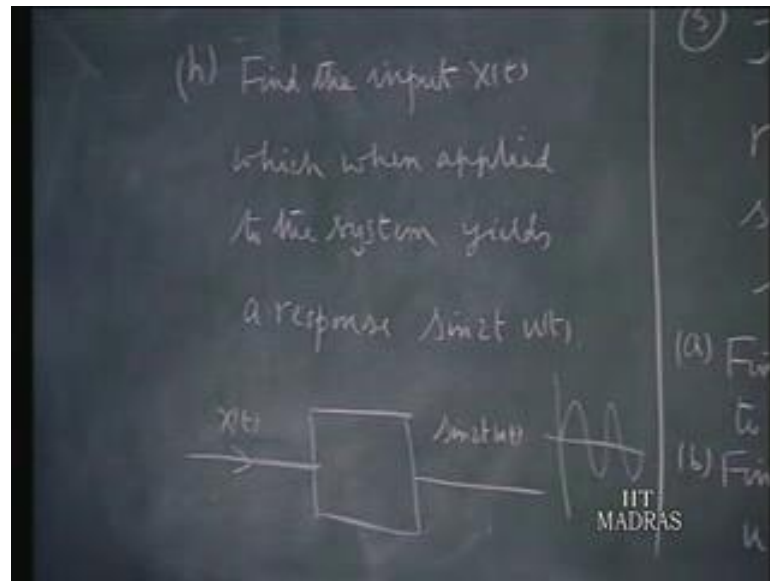 (h) Find the input x(t)
which when applied
to the system yields
a response sin2t u(t)
x(t)
sin2t u(t)
(5)
(a) Fin
to
(b) Fin
u
IIT
MADRAS